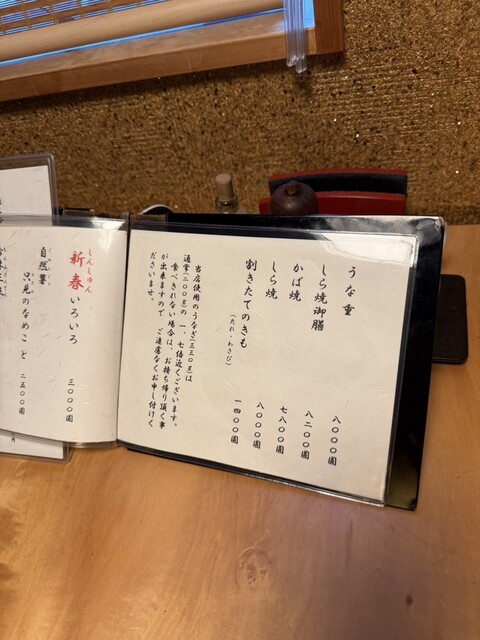 うな重 八〇〇〇圓
しら焼御膳 八二〇〇圓
かば焼 七八〇〇圓
しら焼 八〇〇〇圓
割きたてのきも (たれ・わさび) 一四〇〇圓
当店使用のうなぎ(三三〇g)は
通常(二〇〇g)の一、七倍近くございます。
食べきれない場合は、お持ち帰り頂く事
が出来ますので、ご遠慮なくお申し付けく
ださいませ。
しんしゅん
新春いろいろ 三〇〇〇圓
自然薯
只見のなめこと 二五〇〇圓